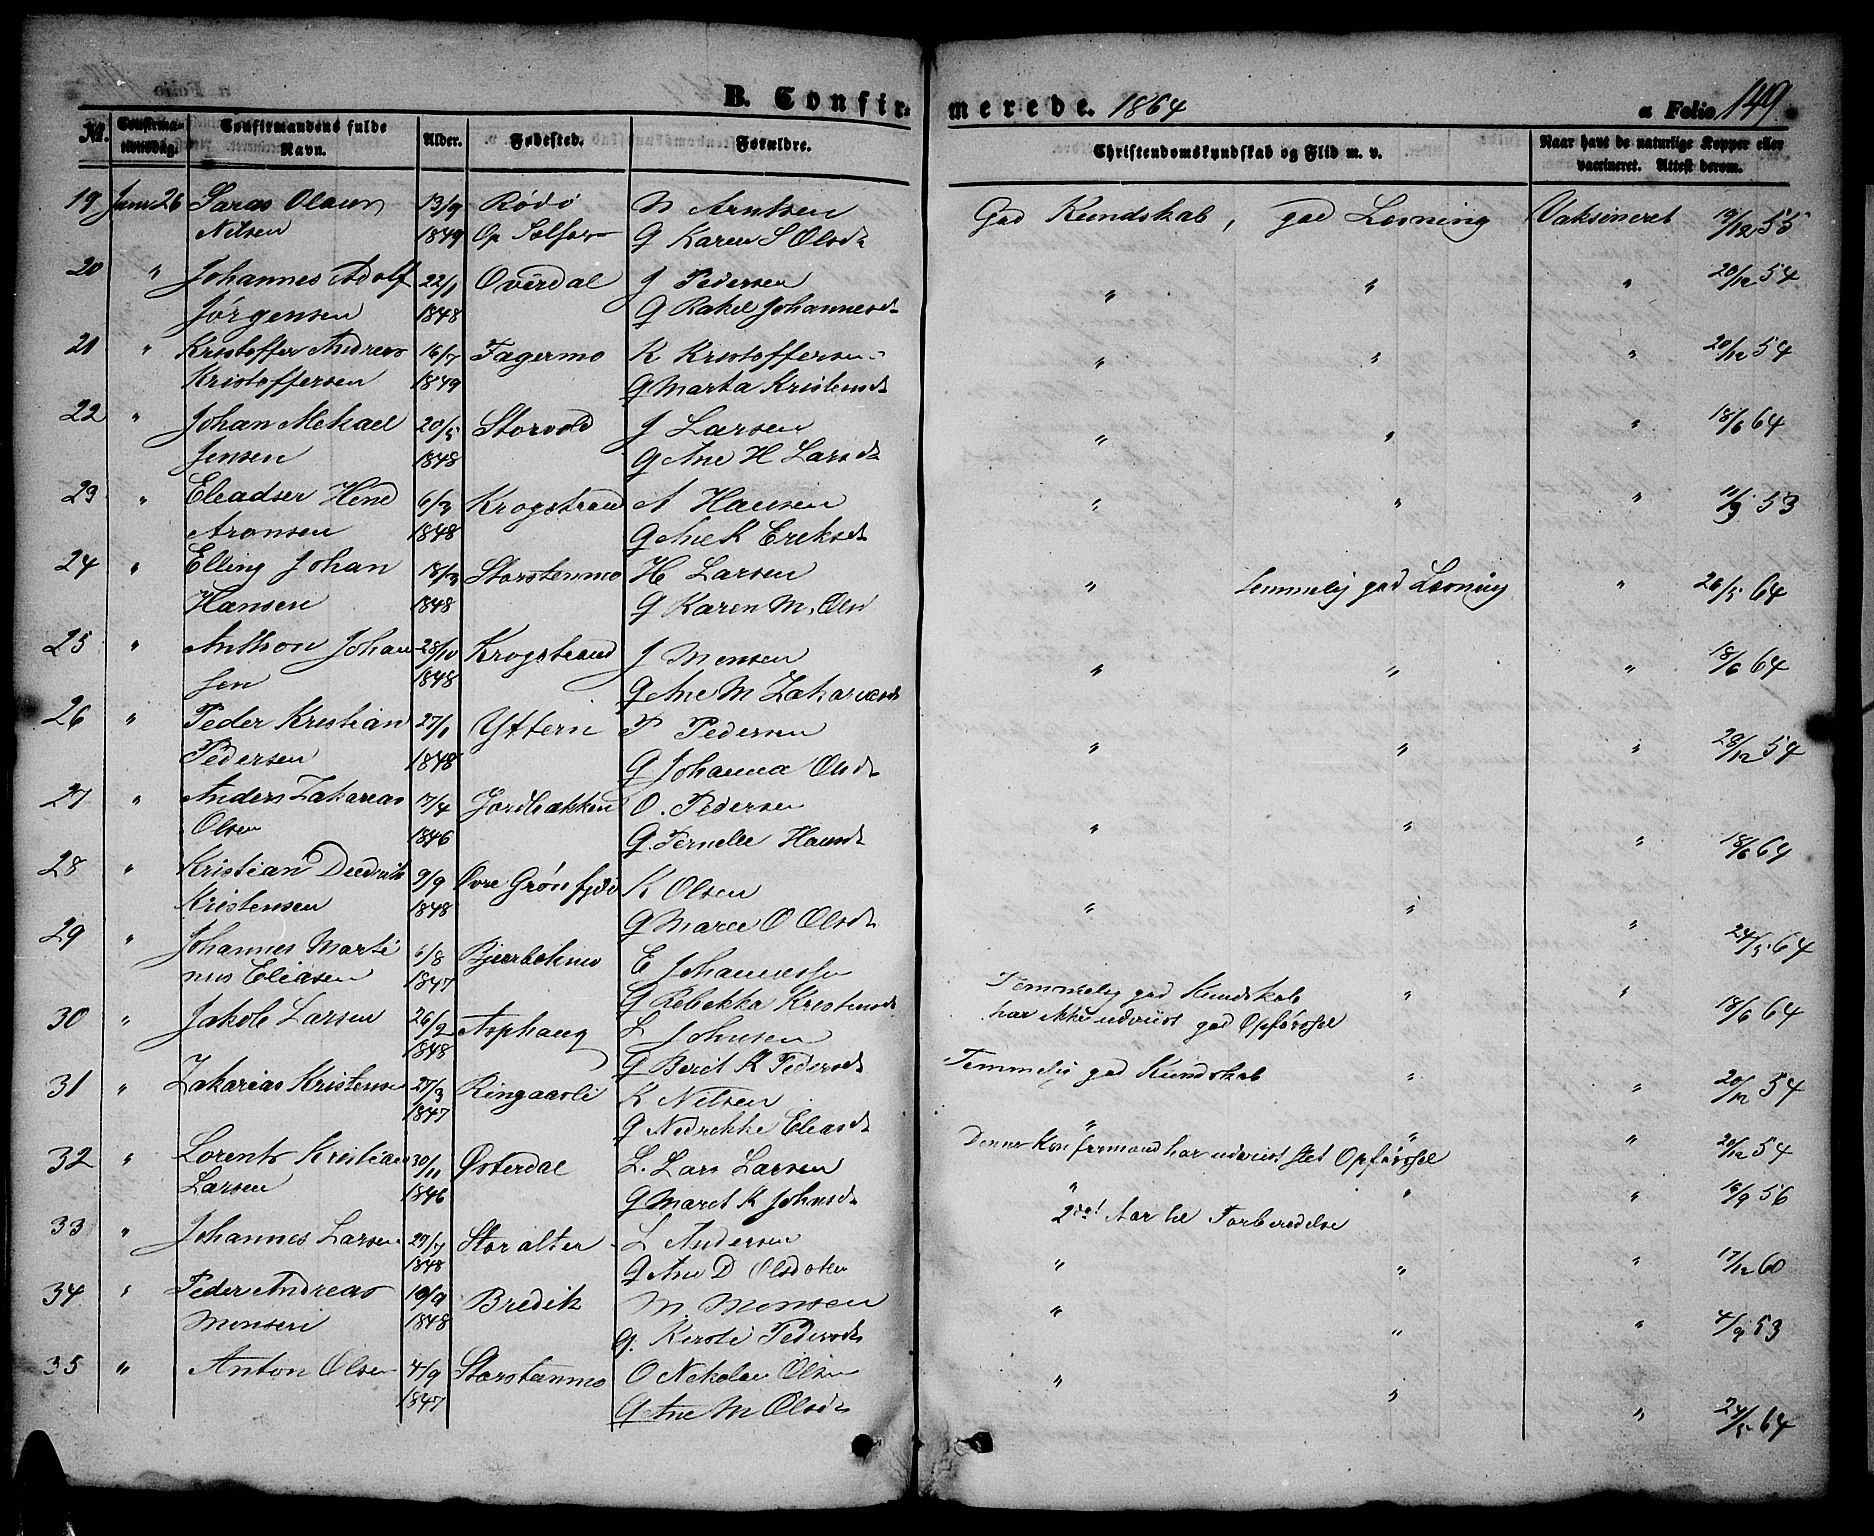 B. Confirmerede. 1864 a Folio 149.
№. Confirmationsdag. Confirmandens fulde Navn. Alder. Fødested. Forældre. Christendomskundskab og Flid m. v. Naar havt de naturlige Kopper eller vaccineret. Attest derom.
19 Juni 26 Olaus 13/9 Rødø N Arntsen God Kundskab, god Lærning Vaksineret 19/12 55
Nilsen 1849 G Karen S Olsdt
20 " Johannes Adolf 22/1 Overdal J Pedersen " " " 20/12 54
Jørgensen 1848 G Rakel Johannesdt
21 " Kristoffer Andreas 16/7 Fagermo K Kristoffersen " " " 20/12 54
Kristoffersen 1849 G Marta Kristensdt
22 " Johan Mekael 20/5 Storvold J Larsen " " " 18/6 64
Jensen 1848 G Ane H Larsdt
23 " Eleadser 6/3 Krogstrand A Hansen " " " 11/9 53
Aronsen 1848 G Ane K Eriksdt
24 " Elling Johan 18/3 Storstenmo H Larsen " Temmelig god Lærning " 26/5 64
Hansen 1848 G Karen M. Olsd
25 " Anthon Johan 28/10 Krogstrand J Monsen " " " 18/6 64
sen 1848 G Ane M Zakariasdt
26 " Peder Kristian 27/1 Yttern P Pedersen " " " 20/12 54
Pedersen 1848 G Johanna Olsdt
27 " Anders Zakarias 17/4 Jordbækken O. Pedersen " " " 18/6 64
Olsen 1846 G. Pernelle Hansdt
28 " Kristian Diedrik 9/9 Øvre Grønfjeld K Olsen " " "
Kristensen 1848 G Maree O Olsdt
29 " Johannes Marti 6/8 E Johannessen 24/5 64
nus Eliasen 1847 G Rebekka Kristensdt Temmelig god Kundskab " "
30 " Jakob Larsen 26/2 Asphaug L Johnsen har ikke udviist god Opførssel 18/6 64
1848 G Berit K Pedersdt
31 " Zakarias Kristense 27/3 Ringaasli K Nilsen Temmelig god Kundskab " " 20/12 54
1847 G Nedrekke Eleasdt
32 " Lorents Kristian 30/11 Østerdal L. Lars Larsen Denne Konfirmand har udviist slet Opførssel " 20/12 54
Larsen 1846 G Maret K Johnsdt " " " 16/9 56
33 " Johannes Larsen 29/7 Storalter L Andersen 2det Aar til Forberedelse
1848 G Ane D Olsdoter " " " 17/12 60
34 " Peder Andreas 19/9 Bredik M. Monsen "
Monsen 1848 G. Kersti Pedersdt " " 4/9 53
35 " Anton Olsen 4/9 Storstenmo O Nekolai Olsen " "
1847 G Ane M Olsdt " 24/5 64